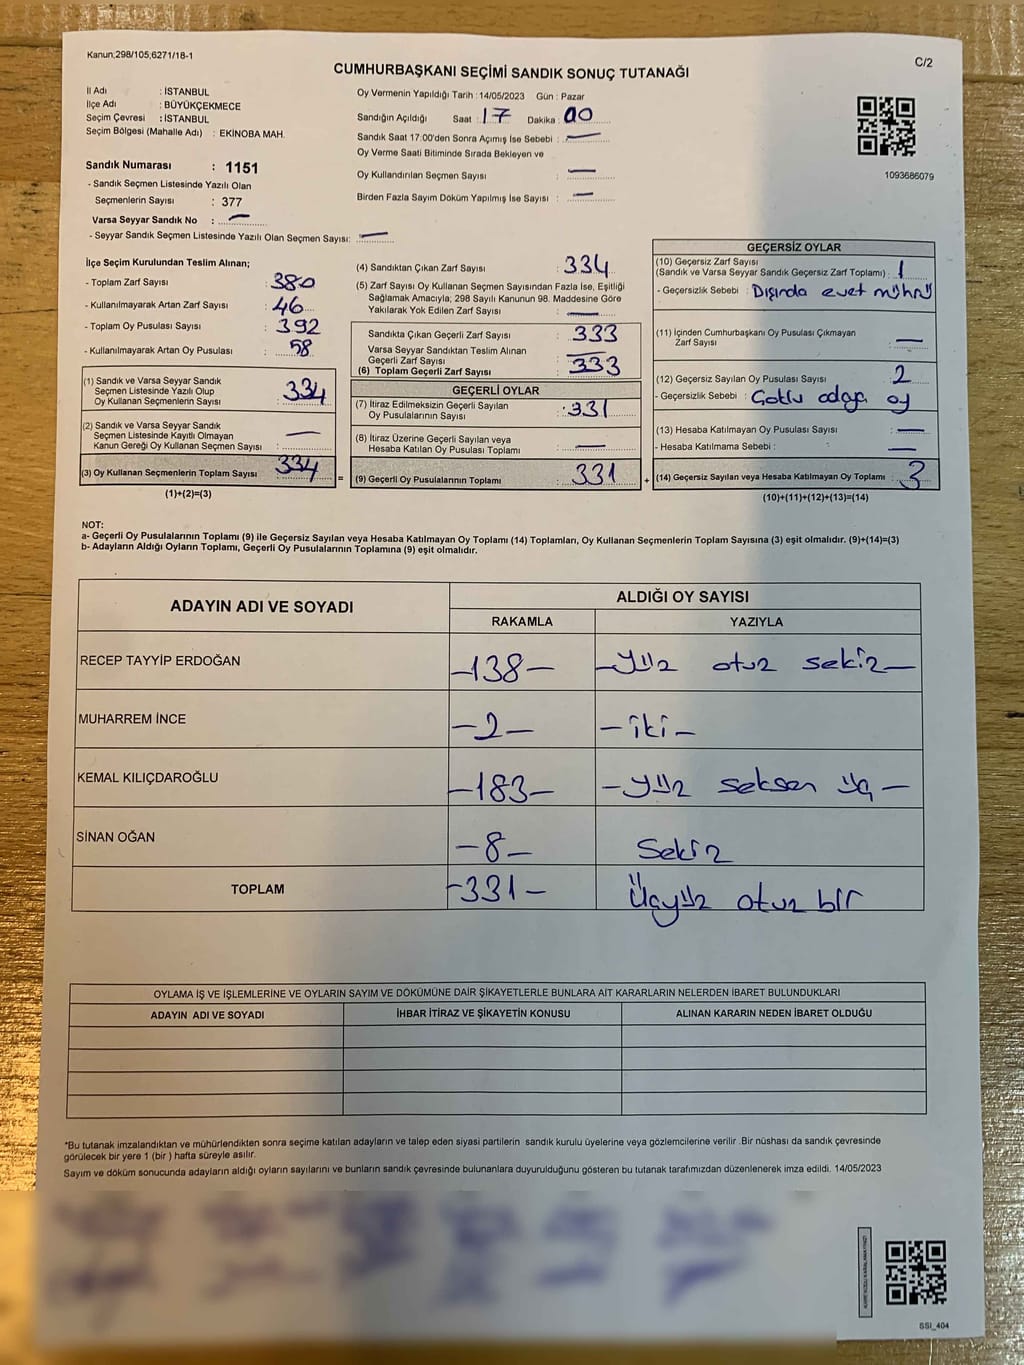 Kanun;298/105;6271/18-1
C/2
CUMHURBAŞKANI SEÇİMİ SANDIK SONUÇ TUTANAĞI
İl Adı : İSTANBUL
İlçe Adı : BÜYÜKÇEKMECE
Seçim Çevresi : İSTANBUL
Seçim Bölgesi (Mahalle Adı) : EKİNOBA MAH.
Sandık Numarası : 1151
- Sandık Seçmen Listesinde Yazılı Olan
Seçmenlerin Sayısı : 377
Varsa Seyyar Sandık No : —
- Seyyar Sandık Seçmen Listesinde Yazılı Olan Seçmen Sayısı: —
Oy Vermenin Yapıldığı Tarih : 14/05/2023 Gün : Pazar
Sandığın Açıldığı Saat : 17 Dakika : 00
Sandık Saat 17:00'den Sonra Açımış İse Sebebi : —
Oy Verme Saati Bitiminde Sırada Bekleyen ve
Oy Kullandırılan Seçmen Sayısı : —
Birden Fazla Sayım Döküm Yapılmış İse Sayısı : —
1093686079
İlçe Seçim Kurulundan Teslim Alınan;
- Toplam Zarf Sayısı : 380
- Kullanılmayarak Artan Zarf Sayısı : 46
- Toplam Oy Pusulası Sayısı : 392
- Kullanılmayarak Artan Oy Pusulası : 58
(1) Sandık ve Varsa Seyyar Sandık
Seçmen Listesinde Yazılı Olup
Oy Kullanan Seçmenlerin Sayısı : 334
(2) Sandık ve Varsa Seyyar Sandık
Seçmen Listesinde Kayıtlı Olmayan
Kanun Gereği Oy Kullanan Seçmen Sayısı : —
(3) Oy Kullanan Seçmenlerin Toplam Sayısı : 334
(1)+(2)=(3)
=
(4) Sandıktan Çıkan Zarf Sayısı : 334
(5) Zarf Sayısı Oy Kullanan Seçmen Sayısından Fazla İse, Eşitliği
Sağlamak Amacıyla; 298 Sayılı Kanunun 98. Maddesine Göre
Yakılarak Yok Edilen Zarf Sayısı : —
Sandıkta Çıkan Geçerli Zarf Sayısı : 333
Varsa Seyyar Sandıktan Teslim Alınan
Geçerli Zarf Sayısı : —
(6) Toplam Geçerli Zarf Sayısı : 333
GEÇERLİ OYLAR
(7) İtiraz Edilmeksizin Geçerli Sayılan
Oy Pusulalarının Sayısı : 331
(8) İtiraz Üzerine Geçerli Sayılan veya
Hesaba Katılan Oy Pusulası Toplamı : —
(9) Geçerli Oy Pusulalarının Toplamı : 331
+
GEÇERSİZ OYLAR
(10) Geçersiz Zarf Sayısı
(Sandık ve Varsa Seyyar Sandık Geçersiz Zarf Toplamı) : 1
- Geçersizlik Sebebi : Dışında evet mührü
(11) İçinden Cumhurbaşkanı Oy Pusulası Çıkmayan
Zarf Sayısı : —
(12) Geçersiz Sayılan Oy Pusulası Sayısı : 2
- Geçersizlik Sebebi : Çoklu adaya oy
(13) Hesaba Katılmayan Oy Pusulası Sayısı : —
- Hesaba Katılmama Sebebi : —
(14) Geçersiz Sayılan veya Hesaba Katılmayan Oy Toplamı : 3
(10)+(11)+(12)+(13)=(14)
NOT:
a- Geçerli Oy Pusulalarının Toplamı (9) ile Geçersiz Sayılan veya Hesaba Katılmayan Oy Toplamı (14) Toplamları, Oy Kullanan Seçmenlerin Toplam Sayısına (3) eşit olmalıdır. (9)+(14)=(3)
b- Adayların Aldığı Oyların Toplamı, Geçerli Oy Pusulalarının Toplamına (9) eşit olmalıdır.
ADAYIN ADI VE SOYADI ALDIĞI OY SAYISI
RAKAMLA YAZIYLA
RECEP TAYYİP ERDOĞAN -138- -Yüz otuz sekiz-
MUHARREM İNCE -2- -iki-
KEMAL KILIÇDAROĞLU -183- -Yüz seksen üç-
SİNAN OĞAN -8- Sekiz
TOPLAM -331- Üçyüz otuz bir
OYLAMA İŞ VE İŞLEMLERİNE VE OYLARIN SAYIM VE DÖKÜMÜNE DAİR ŞİKAYETLERLE BUNLARA AİT KARARLARIN NELERDEN İBARET BULUNDUKLARI
ADAYIN ADI VE SOYADI İHBAR İTİRAZ VE ŞİKAYETİN KONUSU ALINAN KARARIN NEDEN İBARET OLDUĞU
*Bu tutanak imzalandıktan ve mühürlendikten sonra seçime katılan adayların ve talep eden siyasi partilerin sandık kurulu üyelerine veya gözlemcilerine verilir .Bir nüshası da sandık çevresinde
görülecek bir yere 1 (bir ) hafta süreyle asılır.
Sayım ve döküm sonucunda adayların aldığı oyların sayılarını ve bunların sandık çevresinde bulunanlara duyurulduğunu gösteren bu tutanak tarafımızdan düzenlenerek imza edildi. 14/05/2023
SSI_404